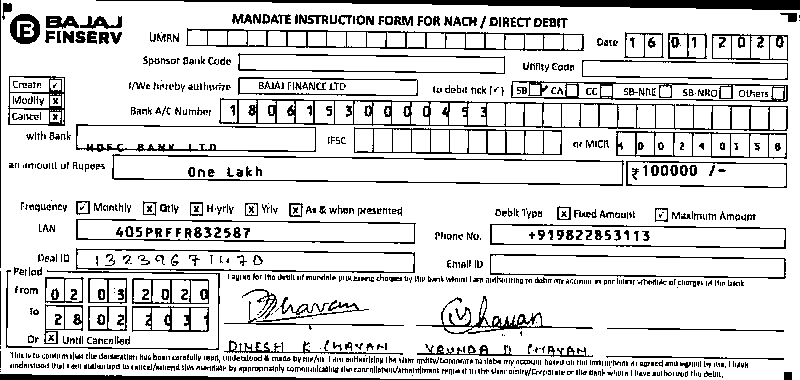 BAJAJ FINSERV
MANDATE INSTRUCTION FORM FOR NACH / DIRECT DEBIT
UMRN Date 16012020
Sponsor Bank Code Utility Code
Create ✓
Modify x
Cancel x
I/We hereby authorize BAJAJ FINANCE LTD to debit tick (✓) SB CA CC SB-NRE SB-NRO Others
Bank A/C Number 18061530000453
with Bank HDFC BANK LTD IFSC or MICR 400240158
an amount of Rupees One Lakh ₹ 100000 /-
Frequency ✓ Monthly x Qtly x H-yrly x Yrly x As & when presented Debit Type x Fixed Amount ✓ Maximum Amount
LAN 405PRFFR832587 Phone No. +919822853113
Deal ID Email ID
I agree for the debit of mandate processing charges by the bank whom I am authorizing to debit my account as per latest schedule of charges of the bank
Period
From 02 03 2020
To 28 02 2031
Or x Until Cancelled
DINESH K CHAVAN VRUNDA D CHAVAN
This is to confirm that the declaration has been carefully read, understood & made by me/us. I am authorizing the user entity/Corporate to debit my account based on the instructions as agreed and signed by me. I have
understood that I am authorized to cancel/amend this mandate by appropriately communicating the cancellation/amendment request to the User entity/Corporate or the bank where I have authorized the debit.